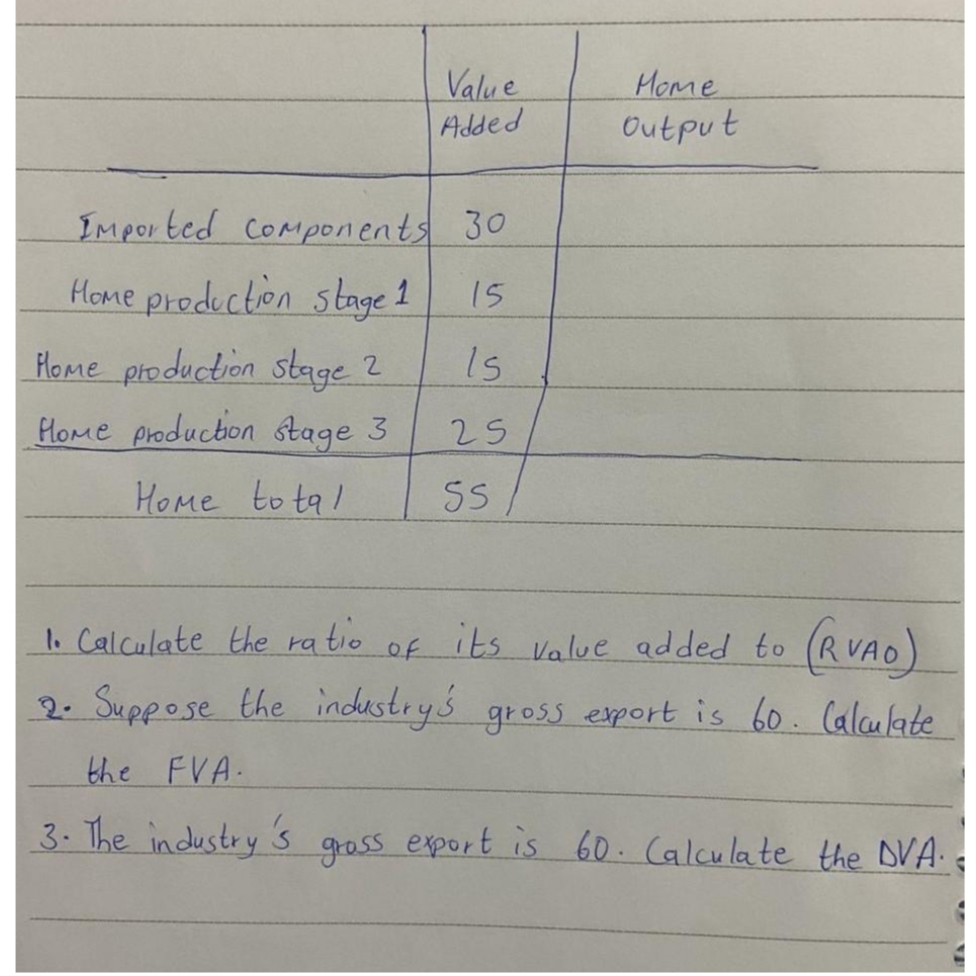 Value Added Home Output
Imported components 30
Home production stage 1 15
Home production stage 2 15
Home production stage 3 25
Home total 55
1. Calculate the ratio of its value added to (RVAO)
2. Suppose the industry's gross export is 60. Calculate
the FVA.
3. The industry's gross export is 60. Calculate the DVA.